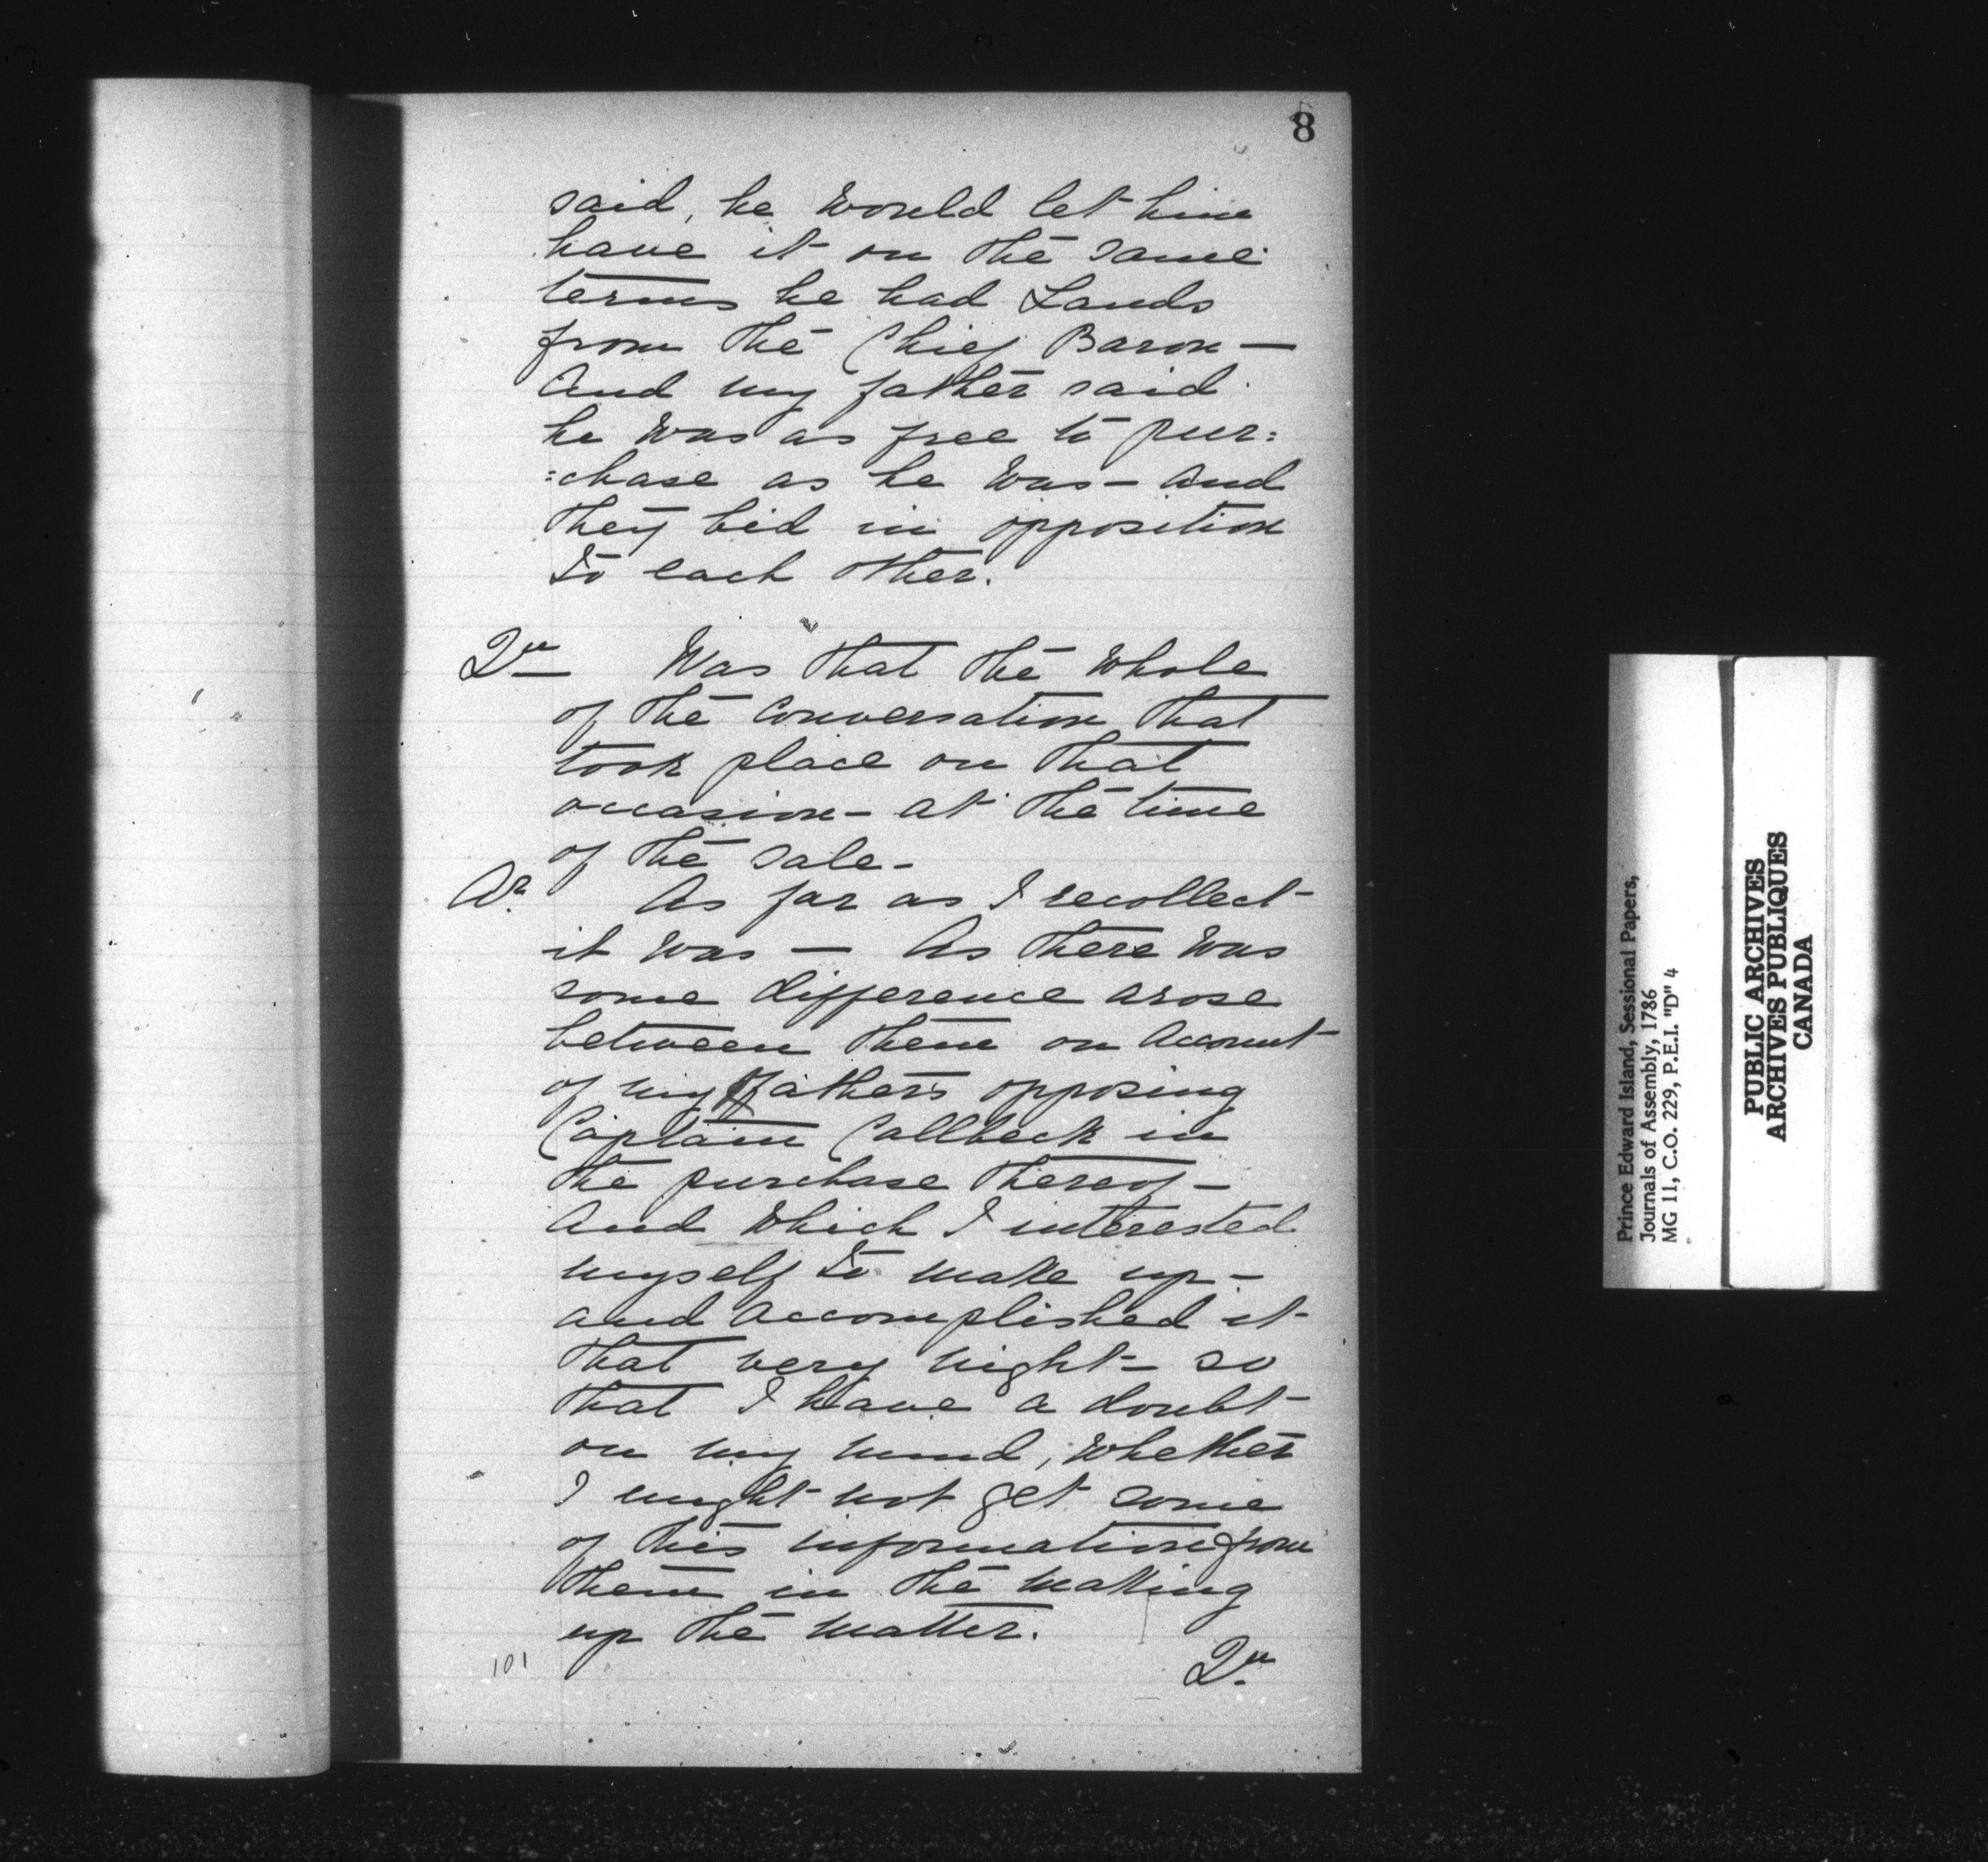 8
said, he would let him
have it on the same
terms he had Lands
from the Chief Baron—
And my father said
he was as free to pur=
=chase as he was— and
they bid in opposition
to each other.
Qu— Was that the whole
of the Conversation that
took place on that
occasion— at the time
of the sale—
Ar. As far as I recollect—
it was— As there was
some difference arose
between them on account
of my fathers opposing
Captain Callbeck in
the purchase thereof—
And which I interested
myself to make up—
and accomplished it—
that very night— so
that I have a doubt
on my mind, whether
I might not get some
of this information from
them in the making
up the matter.
101
Qu.
Prince Edward Island, Sessional Papers,
Journals of Assembly, 1786
MG 11, C.O. 229, P.E.I. "D" 4
PUBLIC ARCHIVES
ARCHIVES PUBLIQUES
CANADA